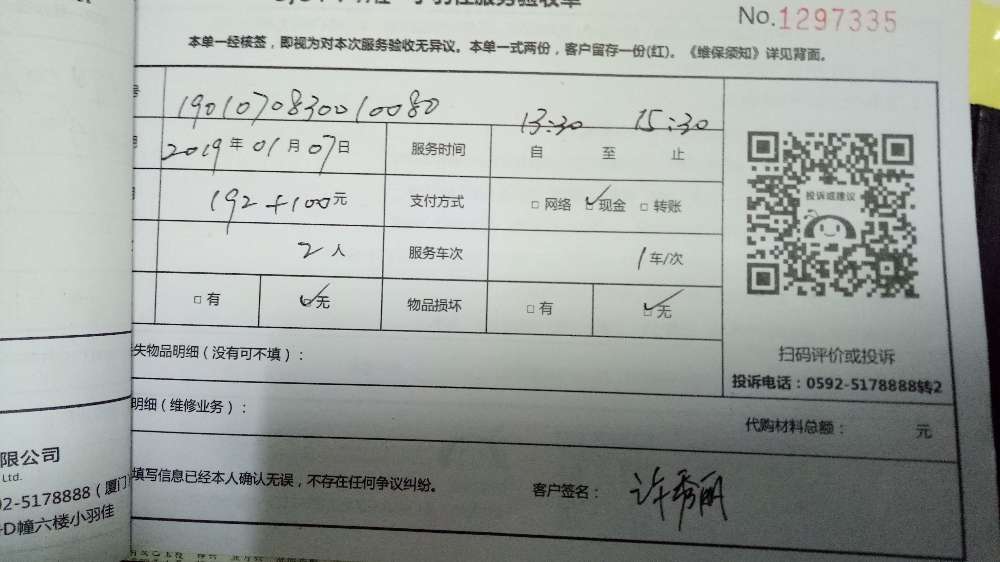 小羽佳服务验收单
No.1297335
本单一经核签，即视为对本次服务验收无异议。本单一式两份，客户留存一份(红)。《维保须知》详见背面。
1901070830010080
13:30 15:30
2019年01月07日 服务时间 自 至 止
192+100元 支付方式 □网络 ☑现金 □转账
2人 服务车次 1车/次
□有 ☑无 物品损坏 □有 ☑无
投诉或建议
扫码评价或投诉
投诉电话：0592-5178888转2
失物品明细（没有可不填）：
明细（维修业务）：
代购材料总额： 元
填写信息已经本人确认无误，不存在任何争议纠纷。
客户签名： 许秀丽
限公司
Ltd.
92-5178888（厦门
D幢六楼小羽佳